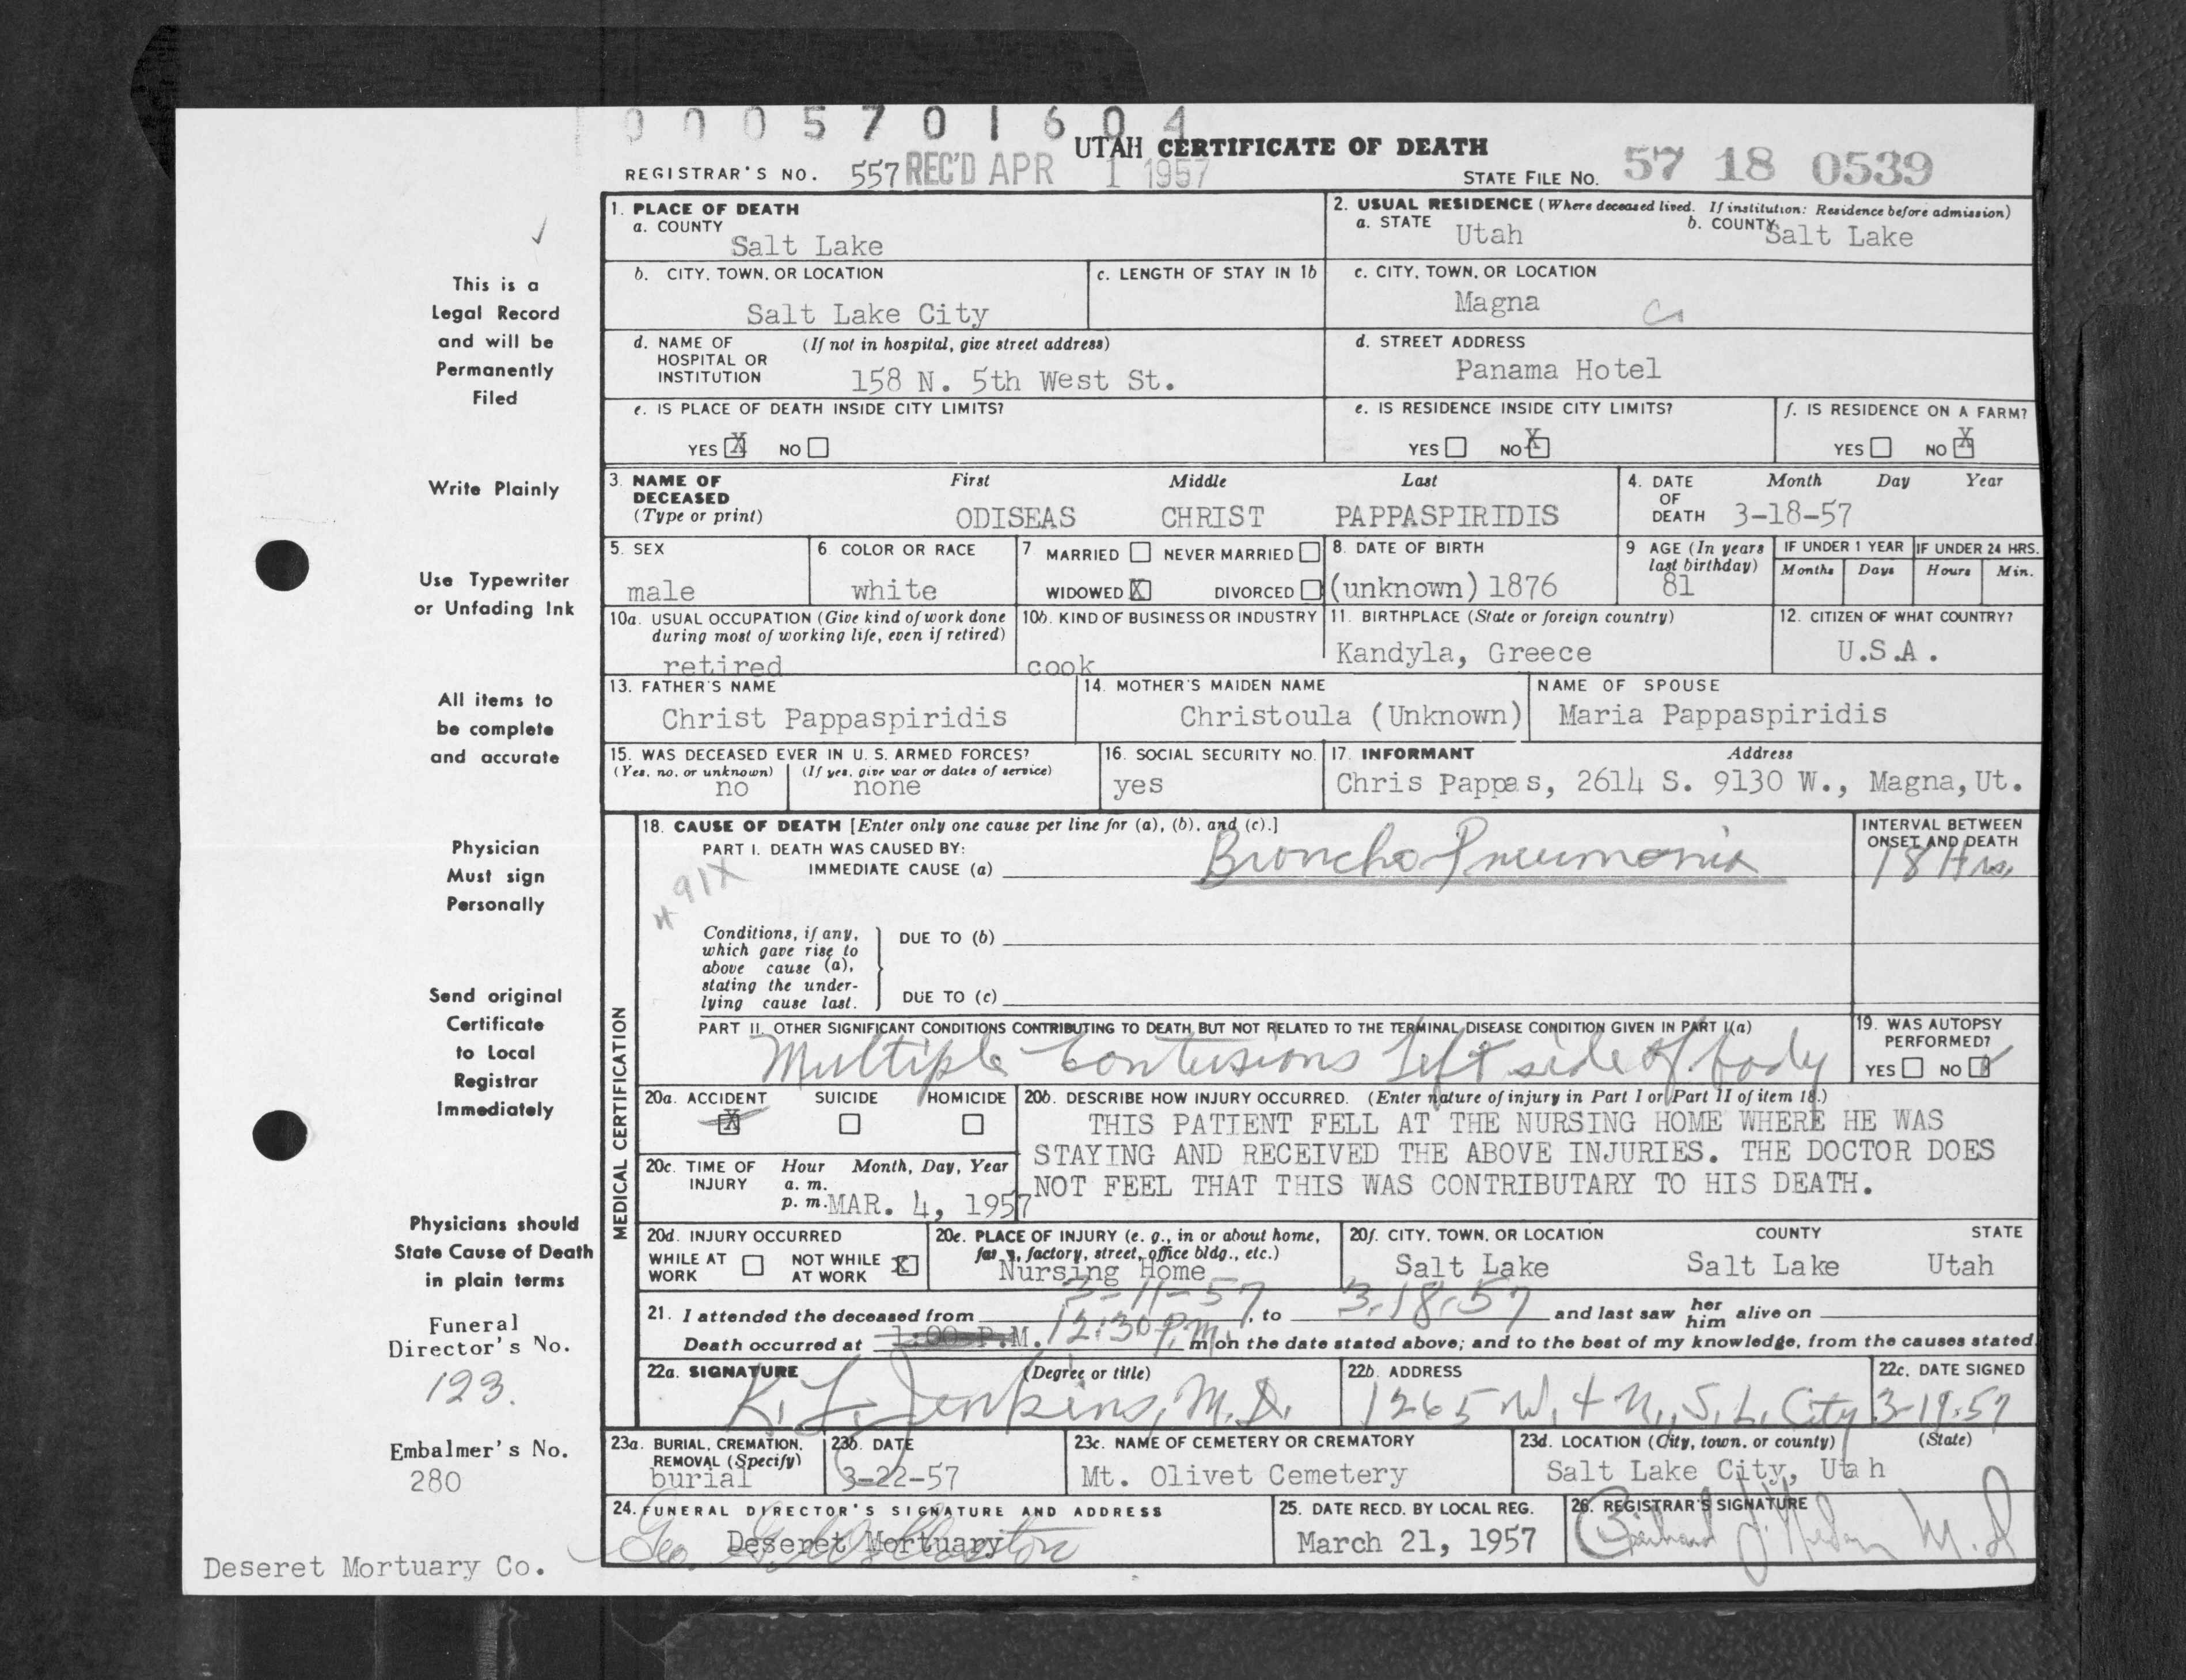 0005701604
UTAH CERTIFICATE OF DEATH
REGISTRAR'S NO. 557 REC'D APR 1 1957
STATE FILE NO. 57 18 0539
This is a
Legal Record
and will be
Permanently
Filed
Write Plainly
Use Typewriter
or Unfading Ink
All items to
be complete
and accurate
Physician
Must sign
Personally
Send original
Certificate
to Local
Registrar
Immediately
Physicians should
State Cause of Death
in plain terms
Funeral
Director's No.
123.
Embalmer's No.
280
Deseret Mortuary Co.
1. PLACE OF DEATH
a. COUNTY
Salt Lake
2. USUAL RESIDENCE (Where deceased lived. If institution: Residence before admission)
a. STATE Utah b. COUNTY Salt Lake
b. CITY, TOWN, OR LOCATION
Salt Lake City
c. LENGTH OF STAY IN 1b
c. CITY, TOWN, OR LOCATION
Magna
d. NAME OF (If not in hospital, give street address)
HOSPITAL OR
INSTITUTION 158 N. 5th West St.
d. STREET ADDRESS
Panama Hotel
e. IS PLACE OF DEATH INSIDE CITY LIMITS?
YES X NO
e. IS RESIDENCE INSIDE CITY LIMITS?
YES NO X
f. IS RESIDENCE ON A FARM?
YES NO X
3. NAME OF DECEASED (Type or print)
First Middle Last
ODISEAS CHRIST PAPPASPIRIDIS
4. DATE OF DEATH Month Day Year
3-18-57
5. SEX
male
6. COLOR OR RACE
white
7. MARRIED NEVER MARRIED
WIDOWED X DIVORCED
8. DATE OF BIRTH
(unknown) 1876
9 AGE (In years last birthday)
81
IF UNDER 1 YEAR
Months Days
IF UNDER 24 HRS.
Hours Min.
10a. USUAL OCCUPATION (Give kind of work done
during most of working life, even if retired)
retired
10b. KIND OF BUSINESS OR INDUSTRY
cook
11. BIRTHPLACE (State or foreign country)
Kandyla, Greece
12. CITIZEN OF WHAT COUNTRY?
U.S.A.
13. FATHER'S NAME
Christ Pappaspiridis
14. MOTHER'S MAIDEN NAME
Christoula (Unknown)
NAME OF SPOUSE
Maria Pappaspiridis
15. WAS DECEASED EVER IN U. S. ARMED FORCES?
(Yes, no, or unknown) (If yes, give war or dates of service)
no none
16. SOCIAL SECURITY NO.
yes
17. INFORMANT Address
Chris Pappas, 2614 S. 9130 W., Magna, Ut.
MEDICAL CERTIFICATION
18. CAUSE OF DEATH [Enter only one cause per line for (a), (b), and (c).]
PART I. DEATH WAS CAUSED BY:
IMMEDIATE CAUSE (a) Broncho Pneumonia
491X
INTERVAL BETWEEN
ONSET AND DEATH
18 Hrs.
Conditions, if any,
which gave rise to
above cause (a),
stating the under-
lying cause last.
DUE TO (b)
DUE TO (c)
PART II. OTHER SIGNIFICANT CONDITIONS CONTRIBUTING TO DEATH BUT NOT RELATED TO THE TERMINAL DISEASE CONDITION GIVEN IN PART I(a)
Multiple Contusions Left side of body
19. WAS AUTOPSY
PERFORMED?
YES NO
20a. ACCIDENT SUICIDE HOMICIDE
X
20b. DESCRIBE HOW INJURY OCCURRED. (Enter nature of injury in Part I or Part II of item 18.)
THIS PATIENT FELL AT THE NURSING HOME WHERE HE WAS
STAYING AND RECEIVED THE ABOVE INJURIES. THE DOCTOR DOES
NOT FEEL THAT THIS WAS CONTRIBUTARY TO HIS DEATH.
20c. TIME OF INJURY Hour Month, Day, Year
a. m.
p. m. MAR. 4, 1957
20d. INJURY OCCURRED
WHILE AT WORK NOT WHILE AT WORK X
20e. PLACE OF INJURY (e. g., in or about home,
farm, factory, street, office bldg., etc.)
Nursing Home
20f. CITY, TOWN, OR LOCATION COUNTY STATE
Salt Lake Salt Lake Utah
21. I attended the deceased from 3-11-57, to 3-18-57 and last saw her him alive on
Death occurred at 1:00 P.M. 12:30 P.M. m on the date stated above; and to the best of my knowledge, from the causes stated
22a. SIGNATURE (Degree or title)
K. L. Jenkins, M.D.
22b. ADDRESS
1265 W. 4 N., S. L. City
22c. DATE SIGNED
3-19-57
23a. BURIAL, CREMATION,
REMOVAL (Specify)
burial
23b. DATE
3-22-57
23c. NAME OF CEMETERY OR CREMATORY
Mt. Olivet Cemetery
23d. LOCATION (City, town, or county) (State)
Salt Lake City, Utah
24. FUNERAL DIRECTOR'S SIGNATURE AND ADDRESS
Deseret Mortuary
25. DATE RECD. BY LOCAL REG.
March 21, 1957
26. REGISTRAR'S SIGNATURE
M.D.